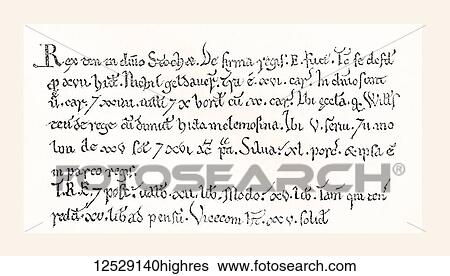 Rex ten in dnio Stochæ. De firma regis. E. fuit. Tc se defd
p xvii hid. Nichil geldauer. Tra ē. xvi. car. In dnio sont
ii. car. 7 xxiiii uilli 7 x bord cū. xx. car. Ibi æccla. q Willī
ten de rege cū dimid hida in elemosina. Ibi v. serui. 7 ii. mo
lini de xxv sol 7 xvi ac pti. Silua. xl. porc. & ipsa ē
in parco regis.
T.R.E. 7 post. ualb. xii. lib. Modo. xv. lib. Tam qui ten
redd. xv. lib ad pensū. Vicecom ht. xxv. solid
FOTOSEARCH
12529140highres www.fotosearch.com